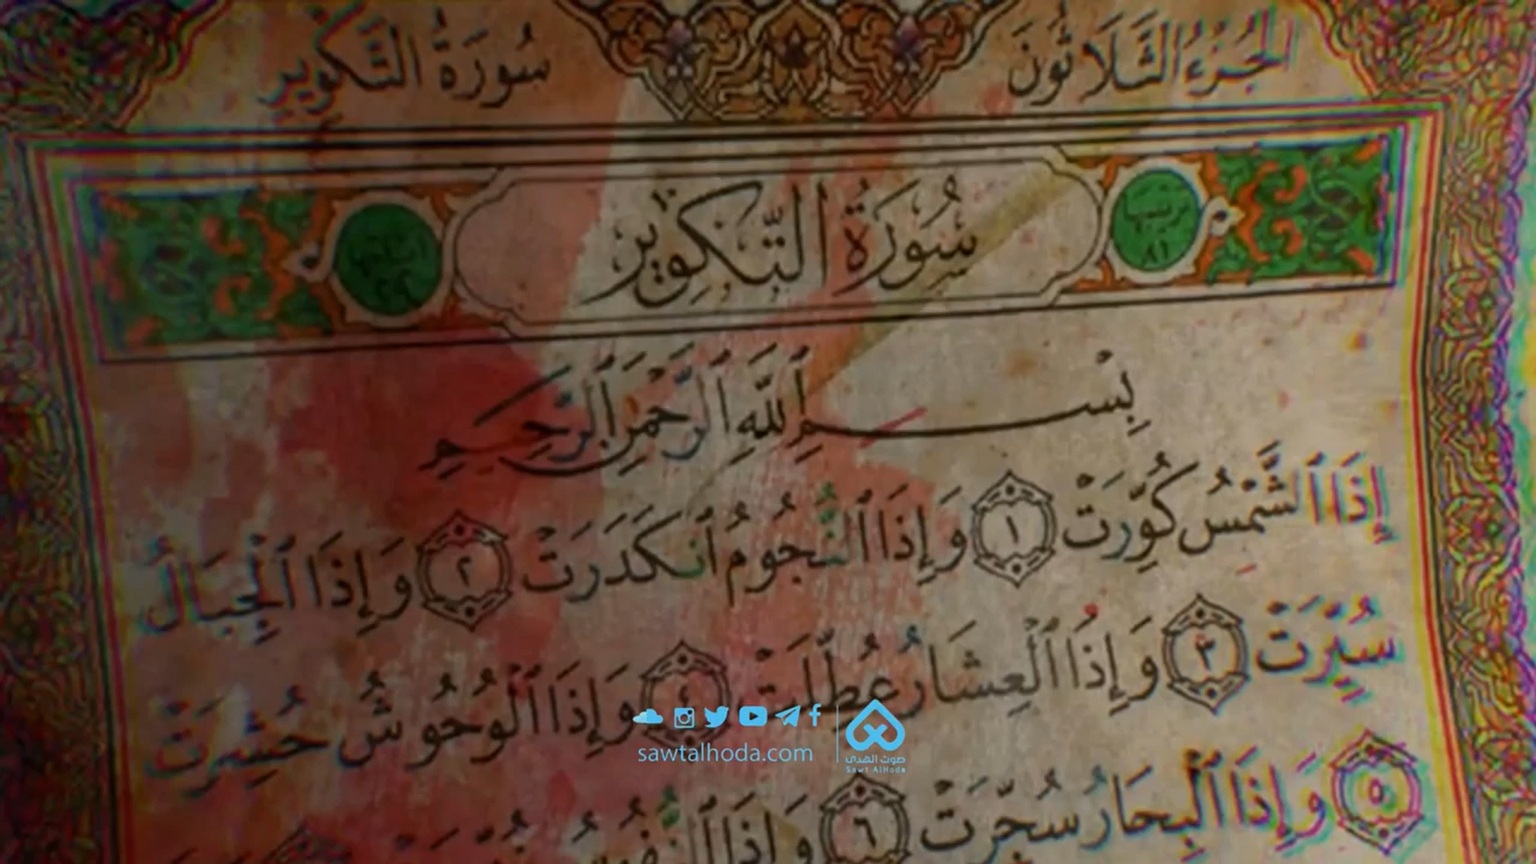 الجُزْءُ الثَّلَاثُونَ
سُورَةُ التَّكْوِيرِ
سُورَةُ التَّكْوِيرِ
٨١
بِسْمِ ٱللَّهِ ٱلرَّحْمَٰنِ ٱلرَّحِيمِ
إِذَا ٱلشَّمْسُ كُوِّرَتْ ١ وَإِذَا ٱلنُّجُومُ ٱنكَدَرَتْ ٢ وَإِذَا ٱلْجِبَالُ
سُيِّرَتْ ٣ وَإِذَا ٱلْعِشَارُ عُطِّلَتْ ٤ وَإِذَا ٱلْوُحُوشُ حُشِرَتْ
٥ وَإِذَا ٱلْبِحَارُ سُجِّرَتْ ٦ وَإِذَا
sawtalhoda.com
صوت الهدى
Sawt AlHoda